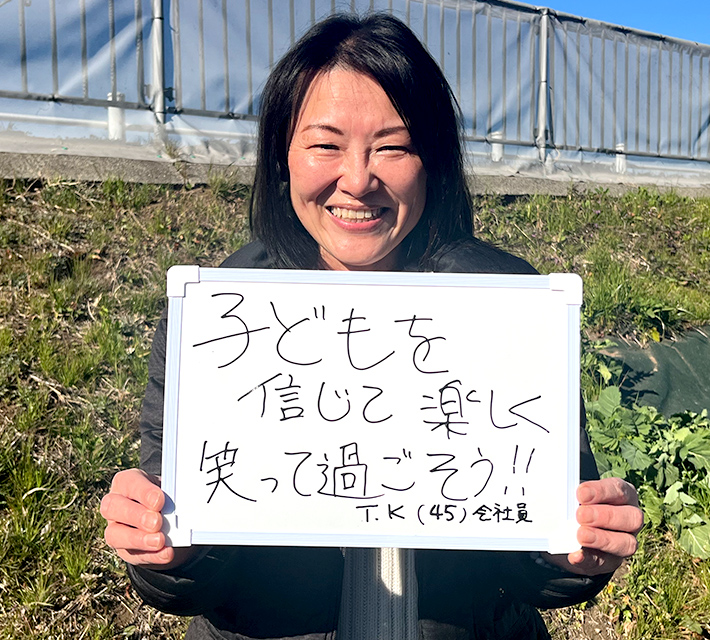 子どもを
信じて 楽しく
笑って過ごそう!!
T.K (45) 会社員